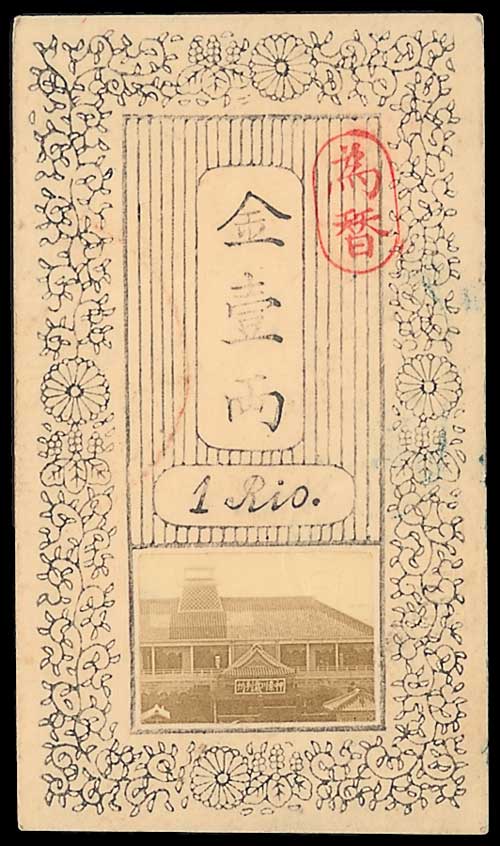 為替
金壹両
1 Rio.